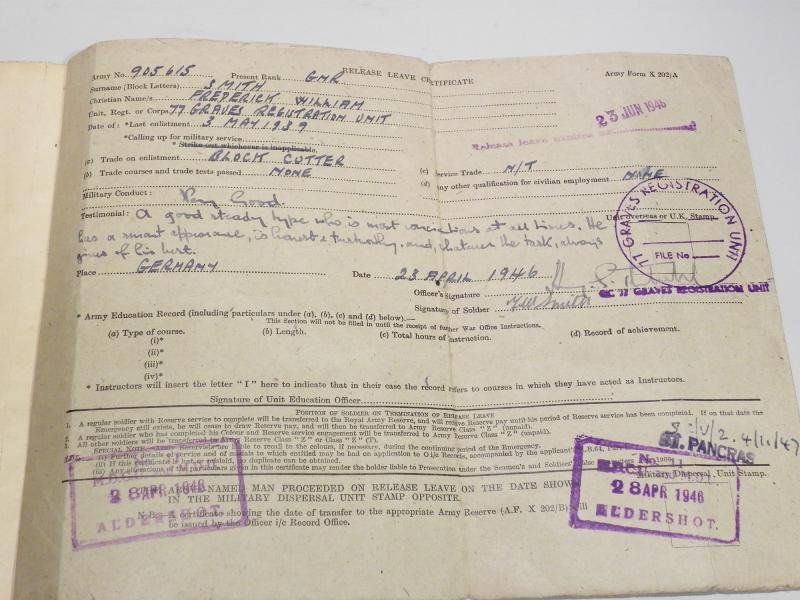 RELEASE LEAVE CERTIFICATE Army Form X 202/A
Army No. 905615 Present Rank GNR
Surname (Block Letters) SMITH
Christian Name/s FREDERICK WILLIAM
Unit, Regt. or Corps 77 GRAVES REGISTRATION UNIT
Date of: *Last enlistment 3 MAY 1939
*Calling up for military service
* Strike out whichever is inapplicable.
23 JUN 1946
Release leave expires
(a) Trade on enlistment BLOCK CUTTER (c) Service Trade N/T
(b) Trade courses and trade tests passed NONE (d) Any other qualification for civilian employment NONE
Military Conduct: Very Good.
Unit overseas or U.K. Stamp.
77 GRAVES REGISTRATION UNIT
FILE No
Testimonial: A good steady type who is most conscientious at all times. He
has a smart appearance, is honest & trustworthy, and, whatever the task, always
gives of his best.
Place GERMANY Date 23 APRIL 1946
Officer's Signature
OC 77 GRAVES REGISTRATION UNIT
Signature of Soldier F W Smith
* Army Education Record (including particulars under (a), (b), (c) and (d) below).—
This Section will not be filled in until the receipt of further War Office Instructions.
(a) Type of course. (b) Length. (c) Total hours of instruction. (d) Record of achievement.
(i)*
(ii)*
(iii)*
(iv)*
* Instructors will insert the letter "I" here to indicate that in their case the record refers to courses in which they have acted as Instructors.
Signature of Unit Education Officer
POSITION OF SOLDIER ON TERMINATION OF RELEASE LEAVE
1. A regular soldier with Reserve service to complete will be transferred to the Royal Army Reserve, and will receive Reserve pay until his period of Reserve service has been completed. If on that date the
Emergency still exists, he will cease to draw Reserve pay, and will then be transferred to Army Reserve Class "Z" (unpaid).
2. A regular soldier who has completed his Colour and Reserve service engagement will be transferred to Army Reserve Class "Z" (unpaid).
3. All other soldiers will be transferred to Army Reserve Class "Z" or Class "Z" (T).
SPECIAL NOTE.
4/11/47
ST. PANCRAS
Military Dispersal Unit Stamp.
No.
28 APR 1946
ALDERSHOT.
28 APR 1946
ALDERSHOT
ABOVE-NAMED MAN PROCEEDED ON RELEASE LEAVE ON THE DATE SHOWN
IN THE MILITARY DISPERSAL UNIT STAMP OPPOSITE.
N.B.—A certificate showing the date of transfer to the appropriate Army Reserve (A.F. X 202/B) will
be issued by the Officer i/c Record Office.